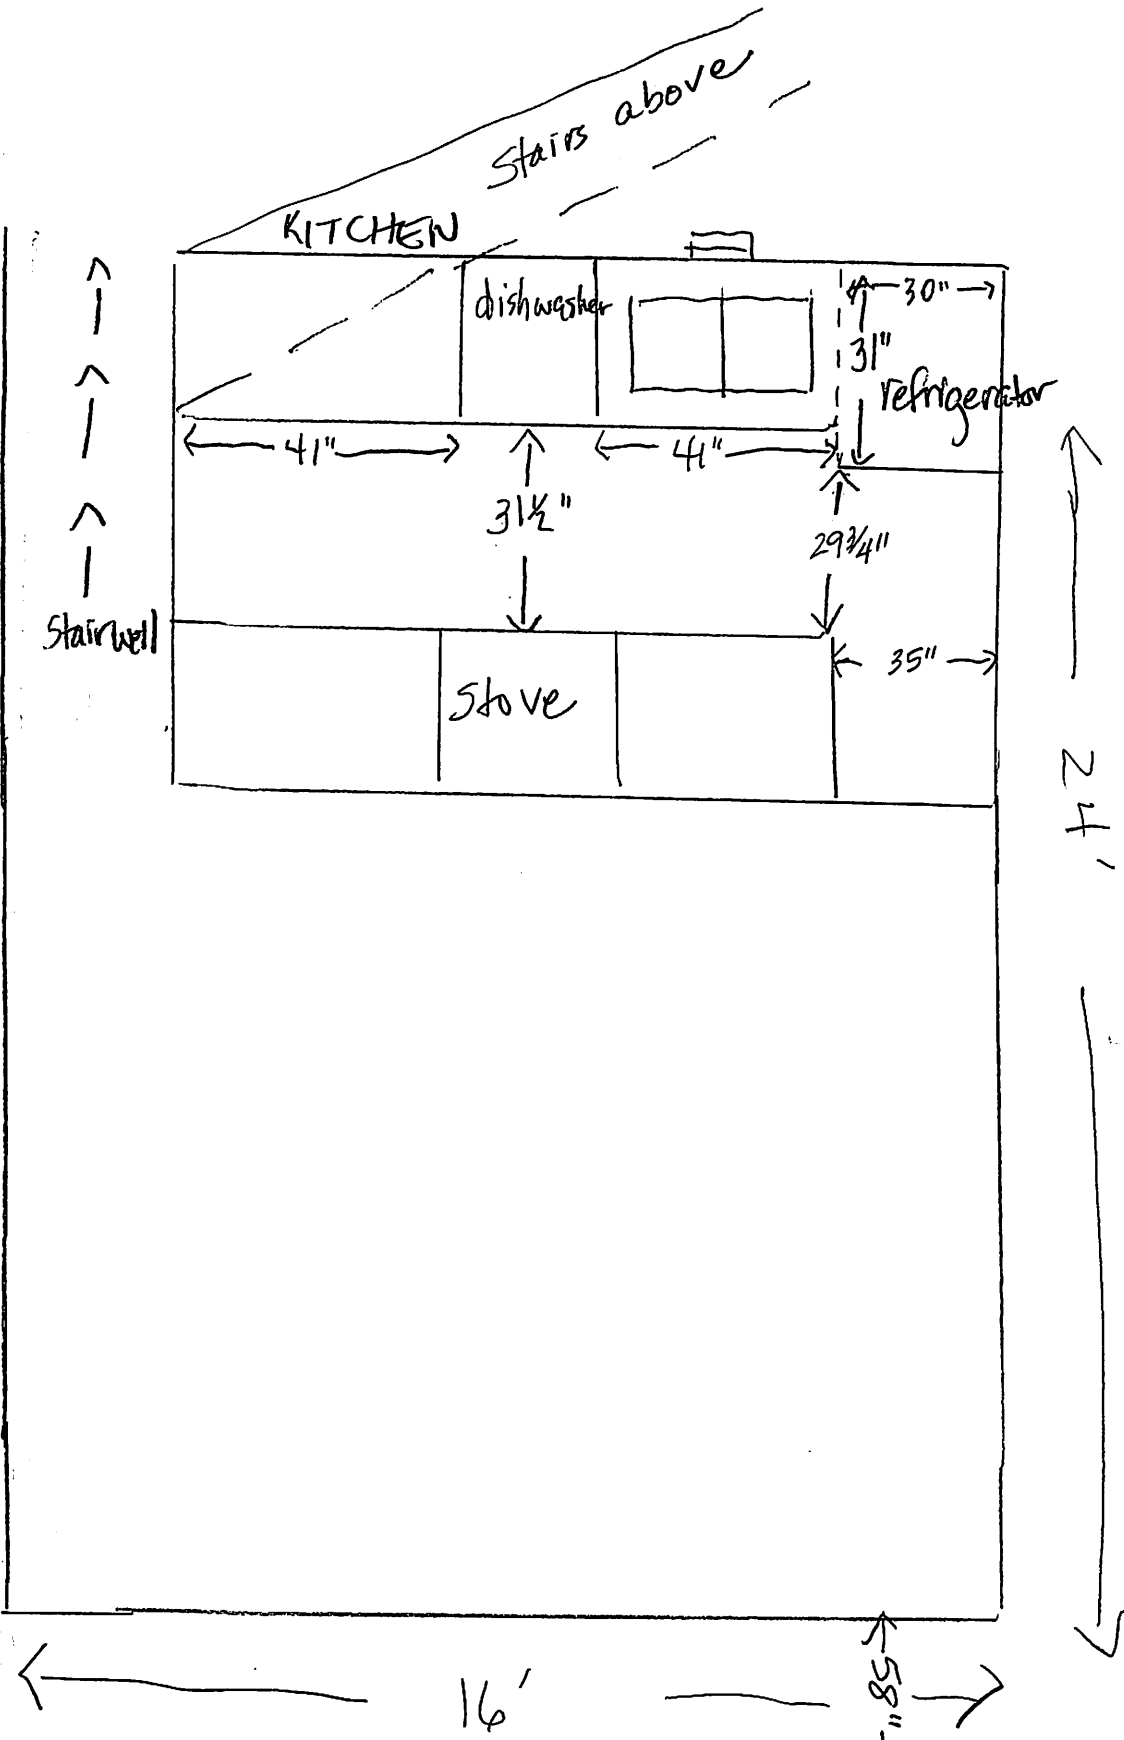 Stairs above
KITCHEN
dishwasher
30"
31"
refrigerator
41"
41"
31½"
29¾"
Stairwell
35"
Stove
24'
16'
58"